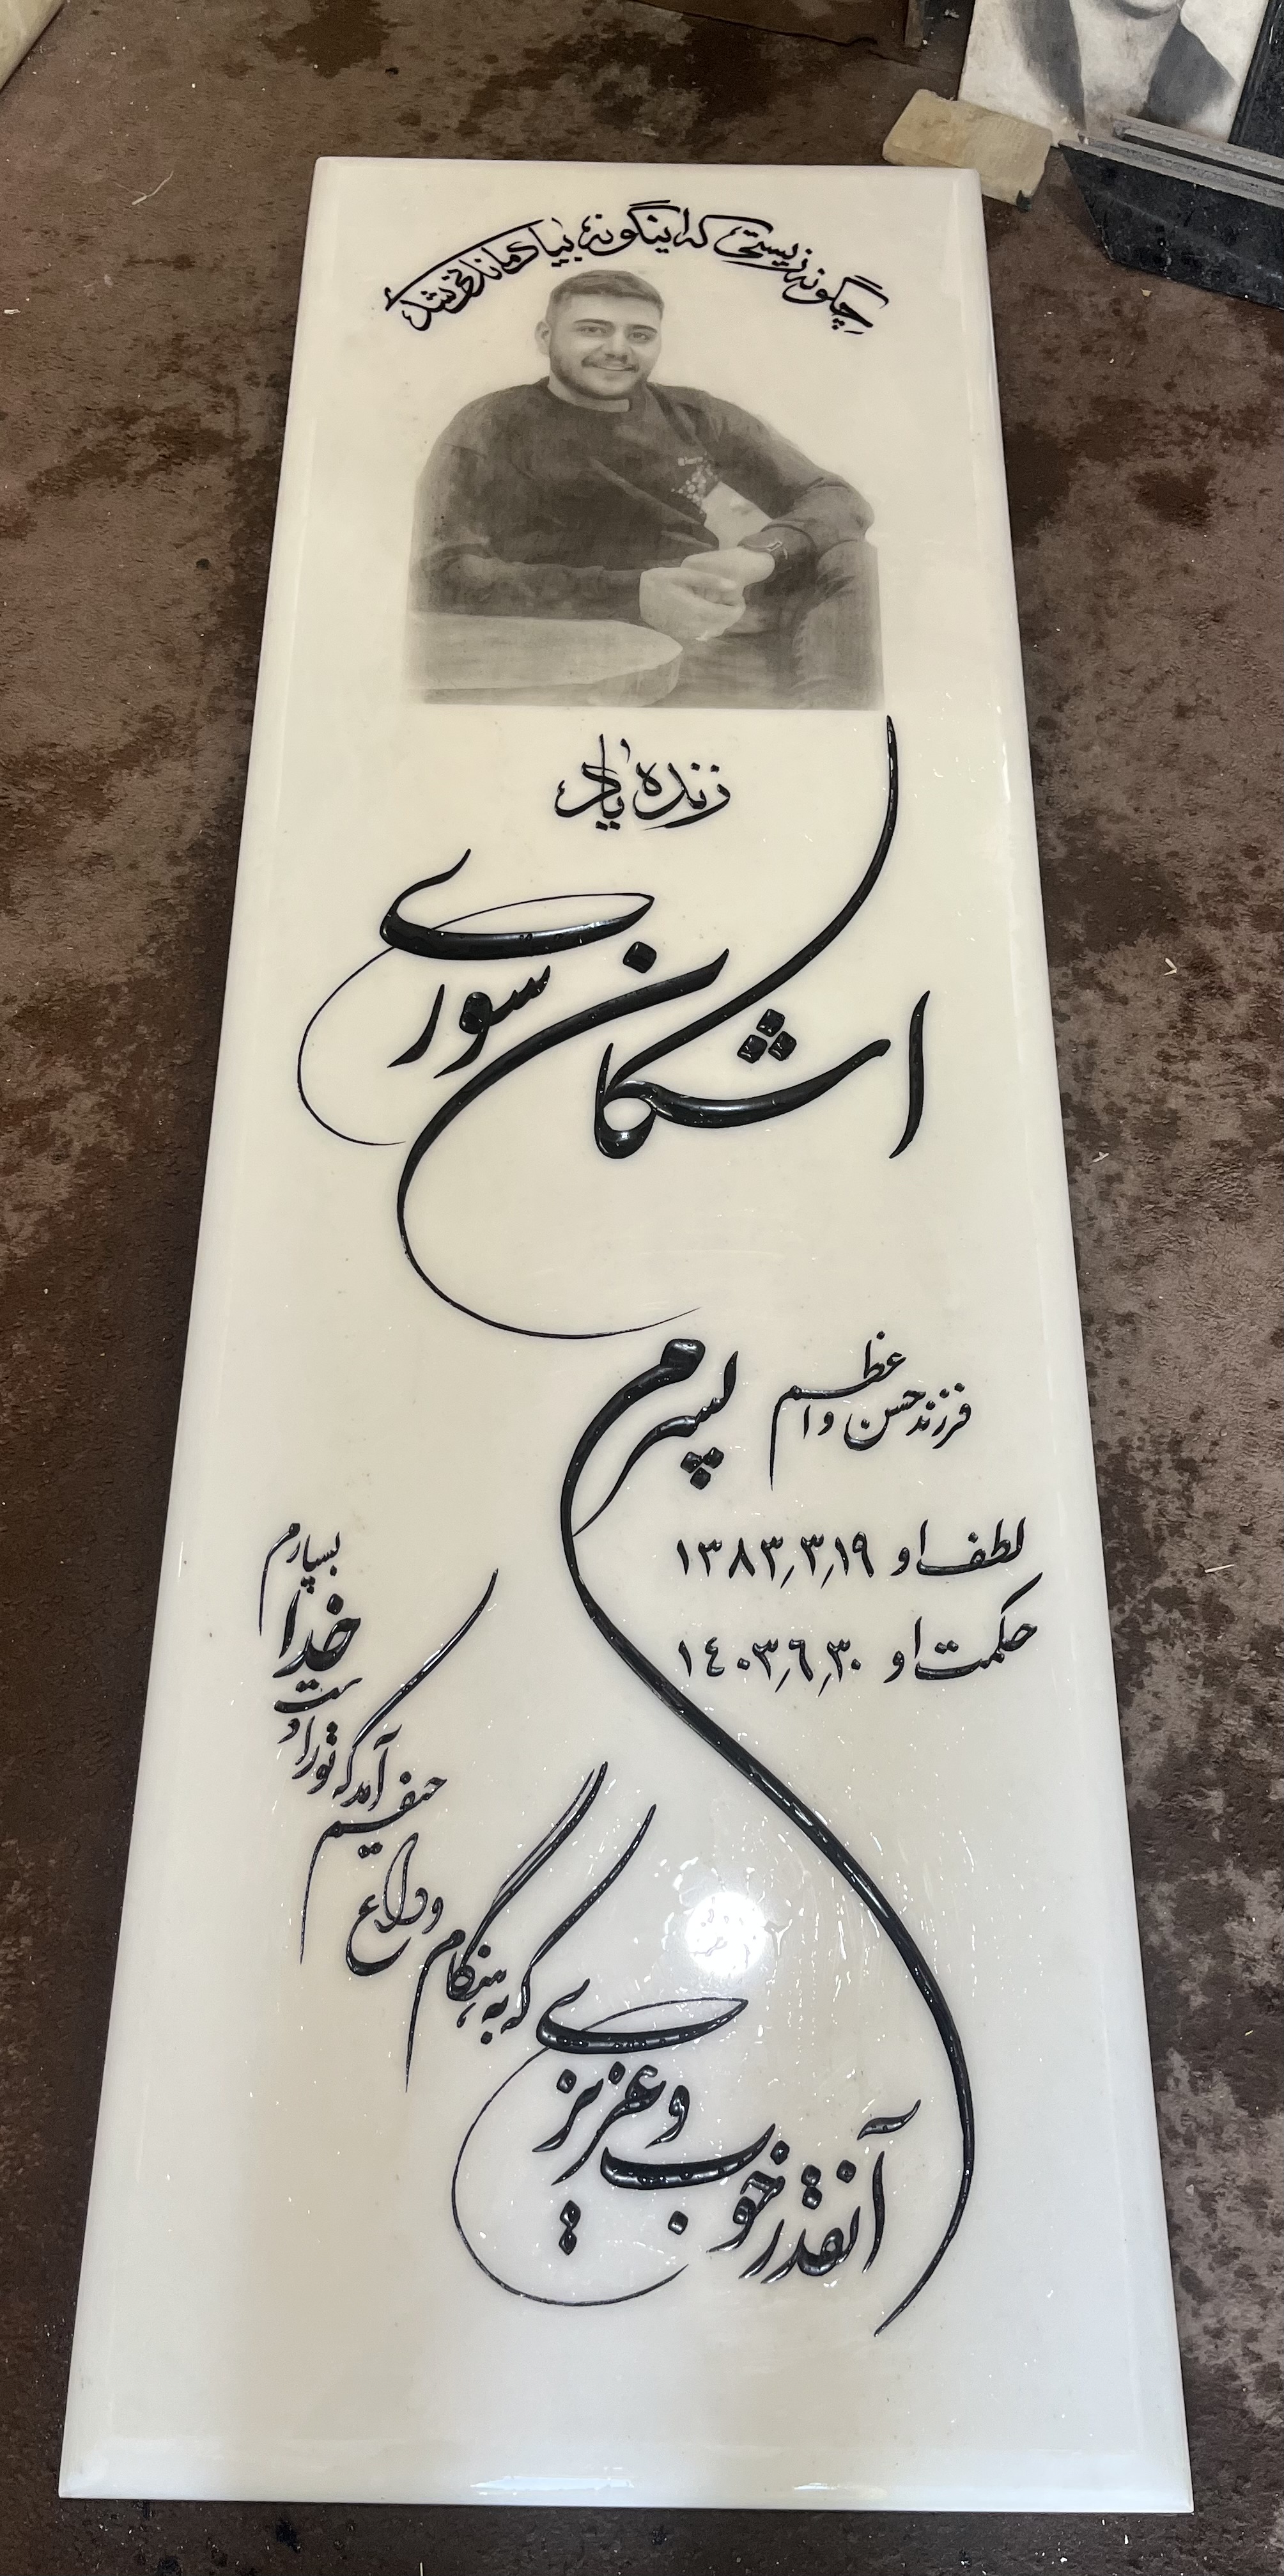 چگونه زیستی که اینگونه بیاد ماندنی شدی
زنده یاد
اشکان سوری
فرزند حسن و اعظم
لطف او ۱۳۸۳٫۳٫۱۹
حکمت او ۱۴۰۳٫۶٫۳۰
پسرم
آنقدر خوب و عزیزی
که به هنگام وداع
حیفم آمد که تو را دست خدا بسپارم